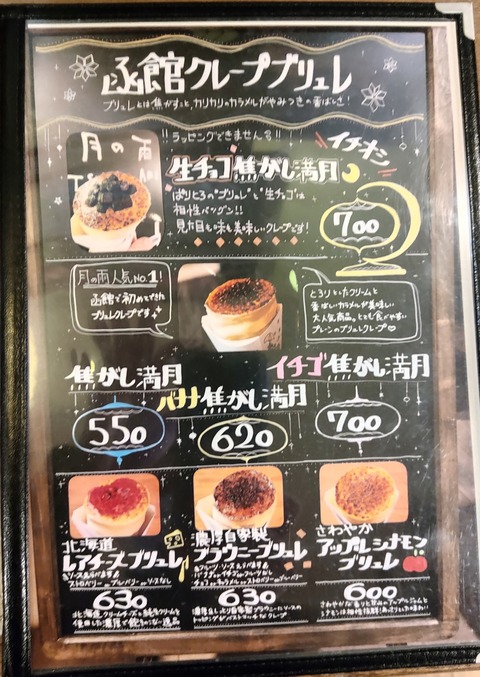 函館クレープブリュレ
ブリュレとは焦がすこと、カリカリのカラメルがやみつきの香ばしさ!
!!ラッピングできません!!
イチオシ
月の雨
生チョコ焦がし満月
700
ぱりとろの"ブリュレ"と"生チョコ"は
相性バツグン!!
見た目も味も美味しいクレープです!
月の雨人気No.1!
函館で初めてできた
ブリュレクレープです
とろりとしたクリームと
香ばしいカラメルが美味しい
大人気商品。とても食べやすい
プレーンのブリュレクレープ♡
焦がし満月
550
バナナ焦がし満月
620
イチゴ焦がし満月
700
北海道
レアチーズブリュレ
ストロベリー ブルーベリー ソースなし
630
北海道クリームチーズと純生クリームを
使用した濃厚で飽きのこない逸品
濃厚自家製
ブラウニーブリュレ
630
トッピングがベストマッチなクレープ
さわやか
アップルシナモン
ブリュレ
600